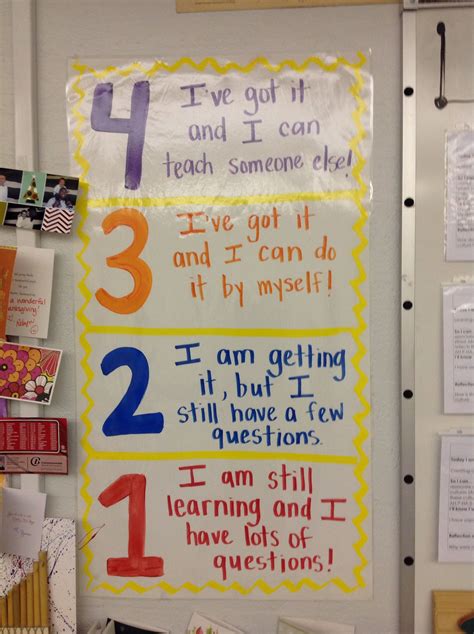 4
I've got it
and I can
teach someone else!
3
I've got it
and I can do
it by myself!
2
I am getting
it, but I
still have a few
questions.
1
I am still
learning and I
have lots of
questions!
a wonderful